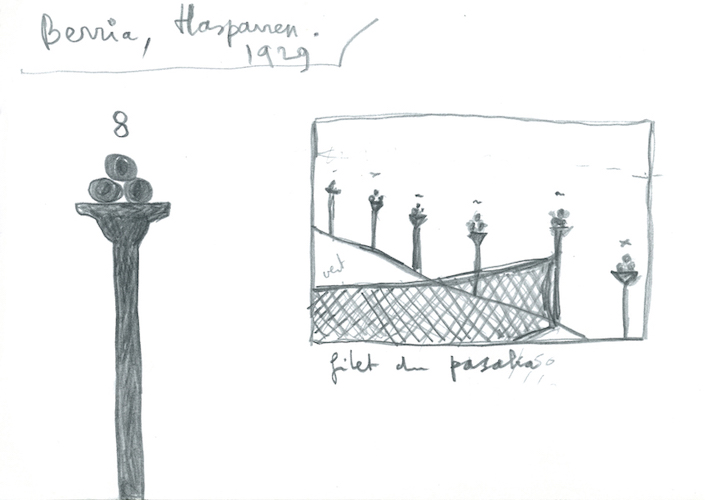 Berria, Hasparren.
1929
8
vert
filet du pasaka